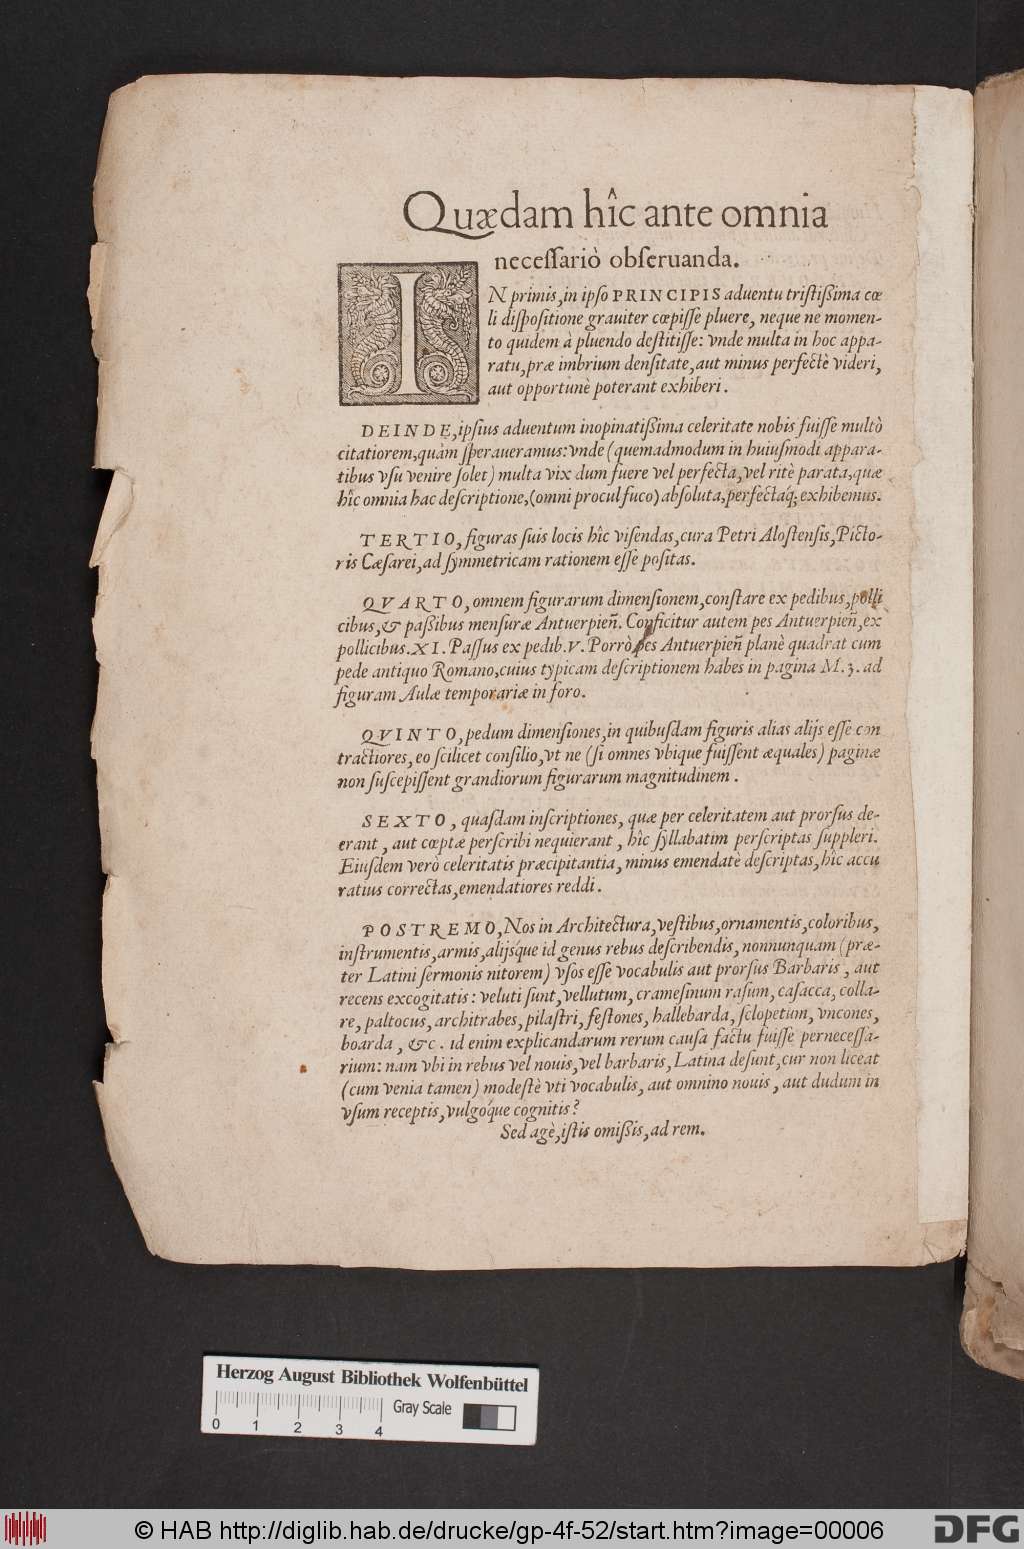 Quædam hîc ante omnia
necessariò obseruanda.
IN primis, in ipso PRINCIPIS aduentu tristißima cœ
li dispositione grauiter cœpisse pluere, neque ne momen-
to quidem à pluendo destitisse: vnde multa in hoc appa-
ratu, præ imbrium densitate, aut minus perfectè videri,
aut opportunè poterant exhiberi.
DEINDE, ipsius aduentum inopinatißima celeritate nobis fuisse multò
citatiorem, quàm speraueramus: vnde (quemadmodum in huiusmodi appara-
tibus vsu venire solet) multa vix dum fuere vel perfecta, vel ritè parata, quæ
hîc omnia hac descriptione, (omni procul fuco) absoluta, perfectaq; exhibemus.
TERTIO, figuras suis locis hîc visendas, cura Petri Alostensis, Picto-
ris Cæsarei, ad symmetricam rationem esse positas.
QVARTO, omnem figurarum dimensionem, constare ex pedibus, polli
cibus, & paßibus mensuræ Antuerpieñ. Conficitur autem pes Antuerpieñ, ex
pollicibus. XI. Passus ex pedib. V. Porrò pes Antuerpieñ planè quadrat cum
pede antiquo Romano, cuius typicam descriptionem habes in pagina M. 3. ad
figuram Aulæ temporariæ in foro.
QVINTO, pedum dimensiones, in quibusdam figuris alias alijs esse con
tractiores, eo scilicet consilio, vt ne (si omnes vbique fuissent æquales) paginæ
non suscepissent grandiorum figurarum magnitudinem.
SEXTO, quasdam inscriptiones, quæ per celeritatem aut prorsus de-
erant, aut cœptæ perscribi nequierant, hîc syllabatim perscriptas suppleri.
Eiusdem verò celeritatis præcipitantia, minus emendatè descriptas, hîc accu
ratius correctas, emendatiores reddi.
POSTREMO, Nos in Architectura, vestibus, ornamentis, coloribus,
instrumentis, armis, alijsque id genus rebus describendis, nonnunquam (præ-
ter Latini sermonis nitorem) vsos esse vocabulis aut prorsus Barbaris, aut
recens excogitatis: veluti sunt, vellutum, cramesinum rasum, casacca, colla-
re, paltocus, architrabes, pilastri, festones, hallebarda, sclopetum, vncones,
boarda, &c. id enim explicandarum rerum causa factu fuisse pernecessa-
rium: nam vbi in rebus vel nouis, vel barbaris, Latina desunt, cur non liceat
(cum venia tamen) modestè vti vocabulis, aut omnino nouis, aut dudum in
vsum receptis, vulgóque cognitis?
Sed agè, istis omißis, ad rem.
Herzog August Bibliothek Wolfenbüttel
0 1 2 3 4 Gray Scale
© HAB http://diglib.hab.de/drucke/gp-4f-52/start.htm?image=00006
DFG